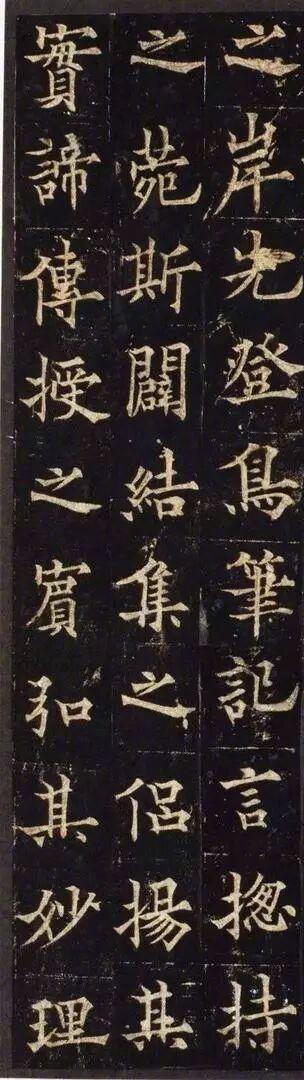 之岸先登鳥筆記言揔持
之菀斯闢結集之侶揚其
實諦傳授之賓弘其妙理